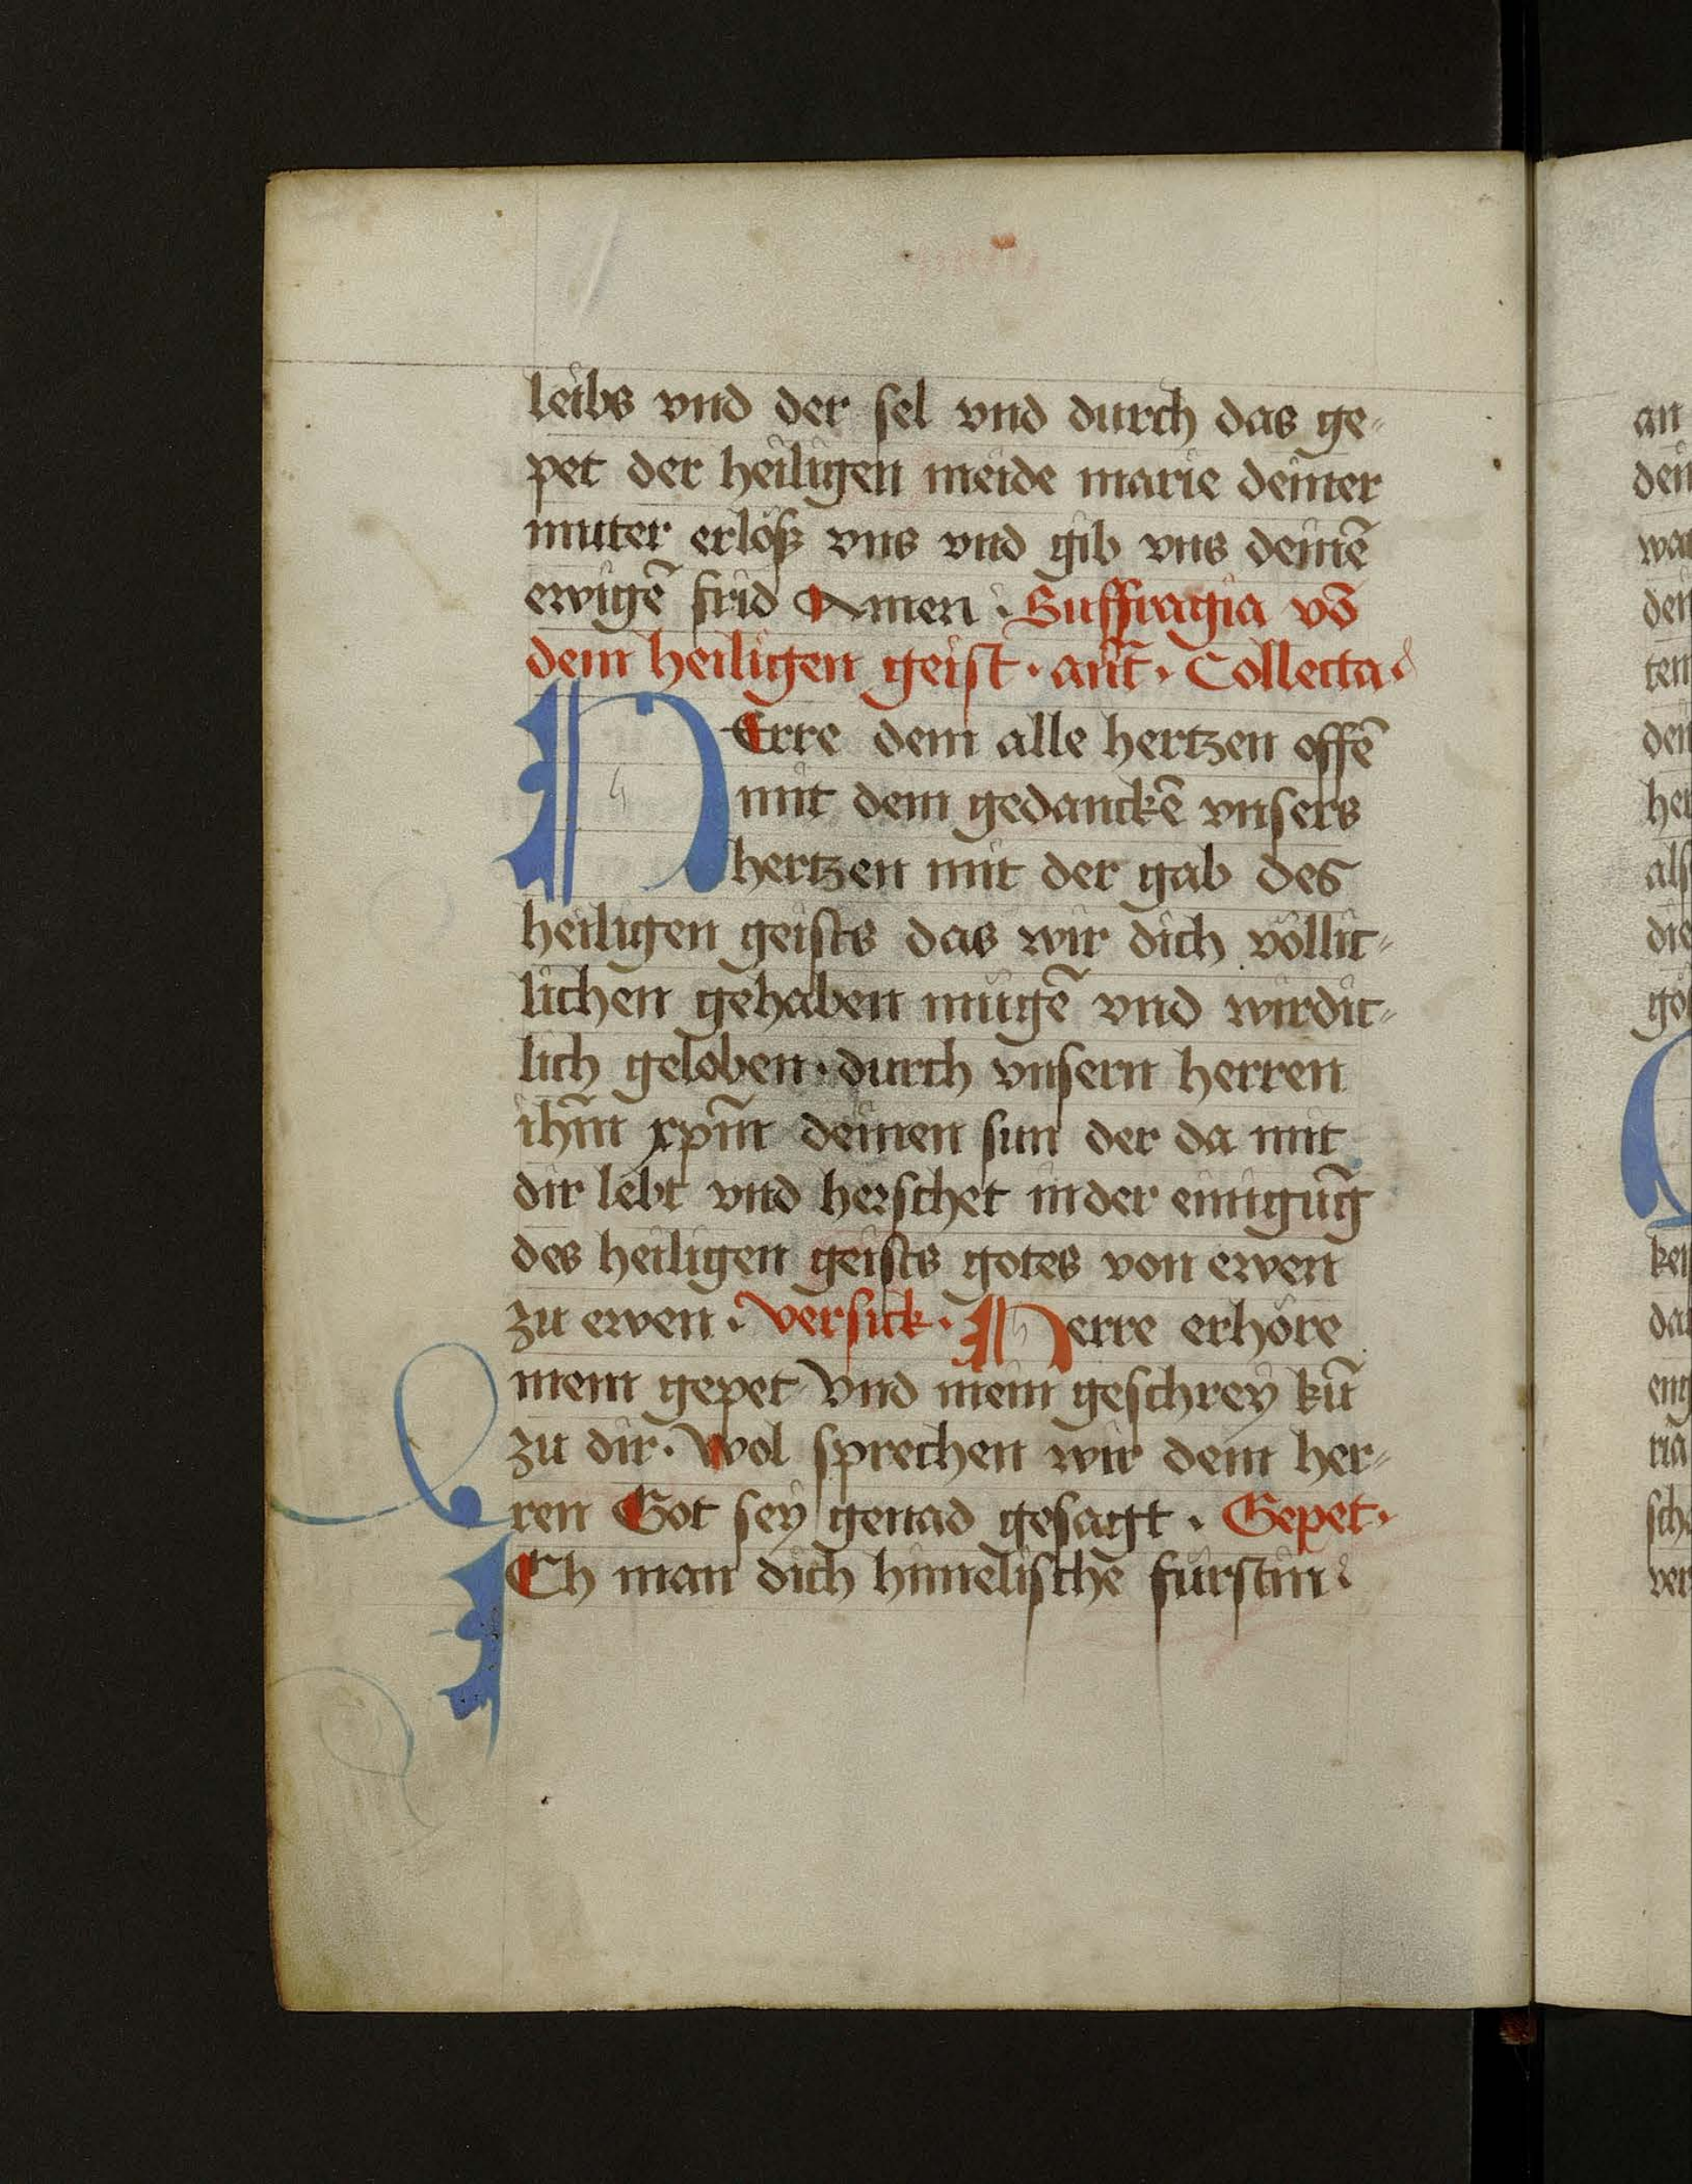 leibs vnd der sel vnd durch das ge-
pet der heiligen meide marie deiner
muter erlöß vns vnd gib vns deinē
ewigē frid Amen . Suffragia vō
dem heiligen geist . añt . Collecta
HErre dem alle hertzen offē
mit dem gedanckē vnsers
hertzen mit der gab des
heiligen geists das wir dich völlic-
lichen gehaben mügē vnd wirdic-
lich geloben . durch vnsern herren
ihm̄ xpm̄ deinen sun der da mit
dir lebt vnd herschet in der einigūg
des heiligen geists gotes von ewen
zu ewen . versick . Herre erhöre
mein gepet vnd mein geschrey kū
zu dir . Wol sprechen wir dem her-
ren Got sey genad gesagt . Gepet .
ICh man dich himelischē fürstin
an
dein
wa
den
tem
den
her
als
die
gö
ken
da
eng
ria
sch
ver